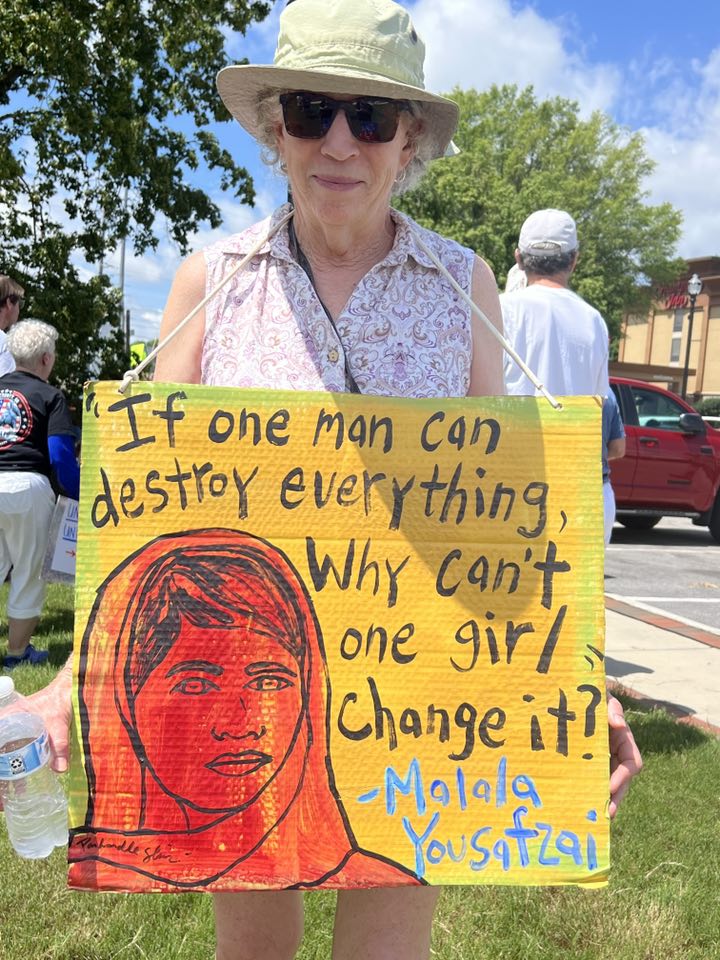 "If one man can
destroy everything,
Why can't
one girl
change it?"
-Malala
Yousafzai
Panhandle Slim